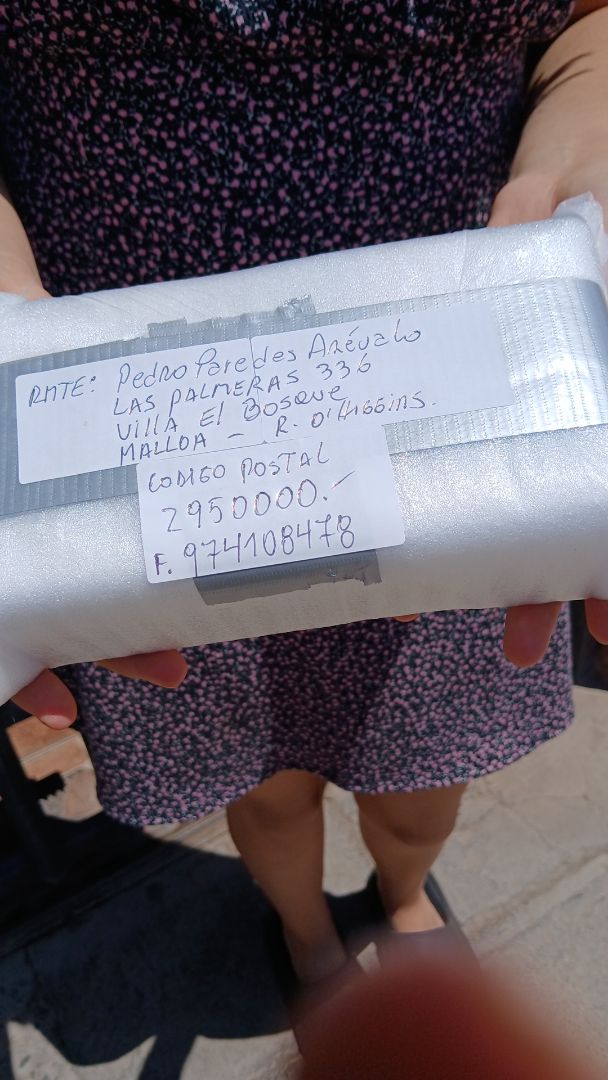 RMTE: Pedro Paredes Arévalo
LAS PALMERAS 336
Villa El Bosque
MALLOA - R. O'Higgins.
CODIGO POSTAL
2950000.-
F. 974108478